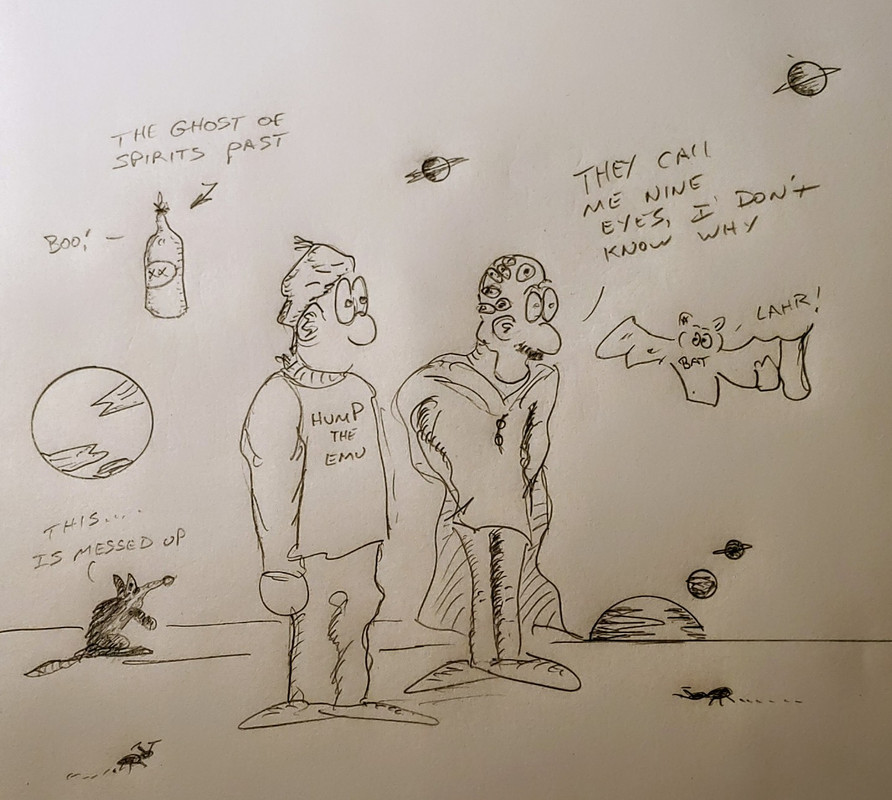 THE GHOST OF
SPIRITS PAST
BOO!
XX
THEY CALL
ME NINE
EYES, I DON'T
KNOW WHY
LAHR!
BAT
HUMP
THE
EMU
THIS....
IS MESSED UP